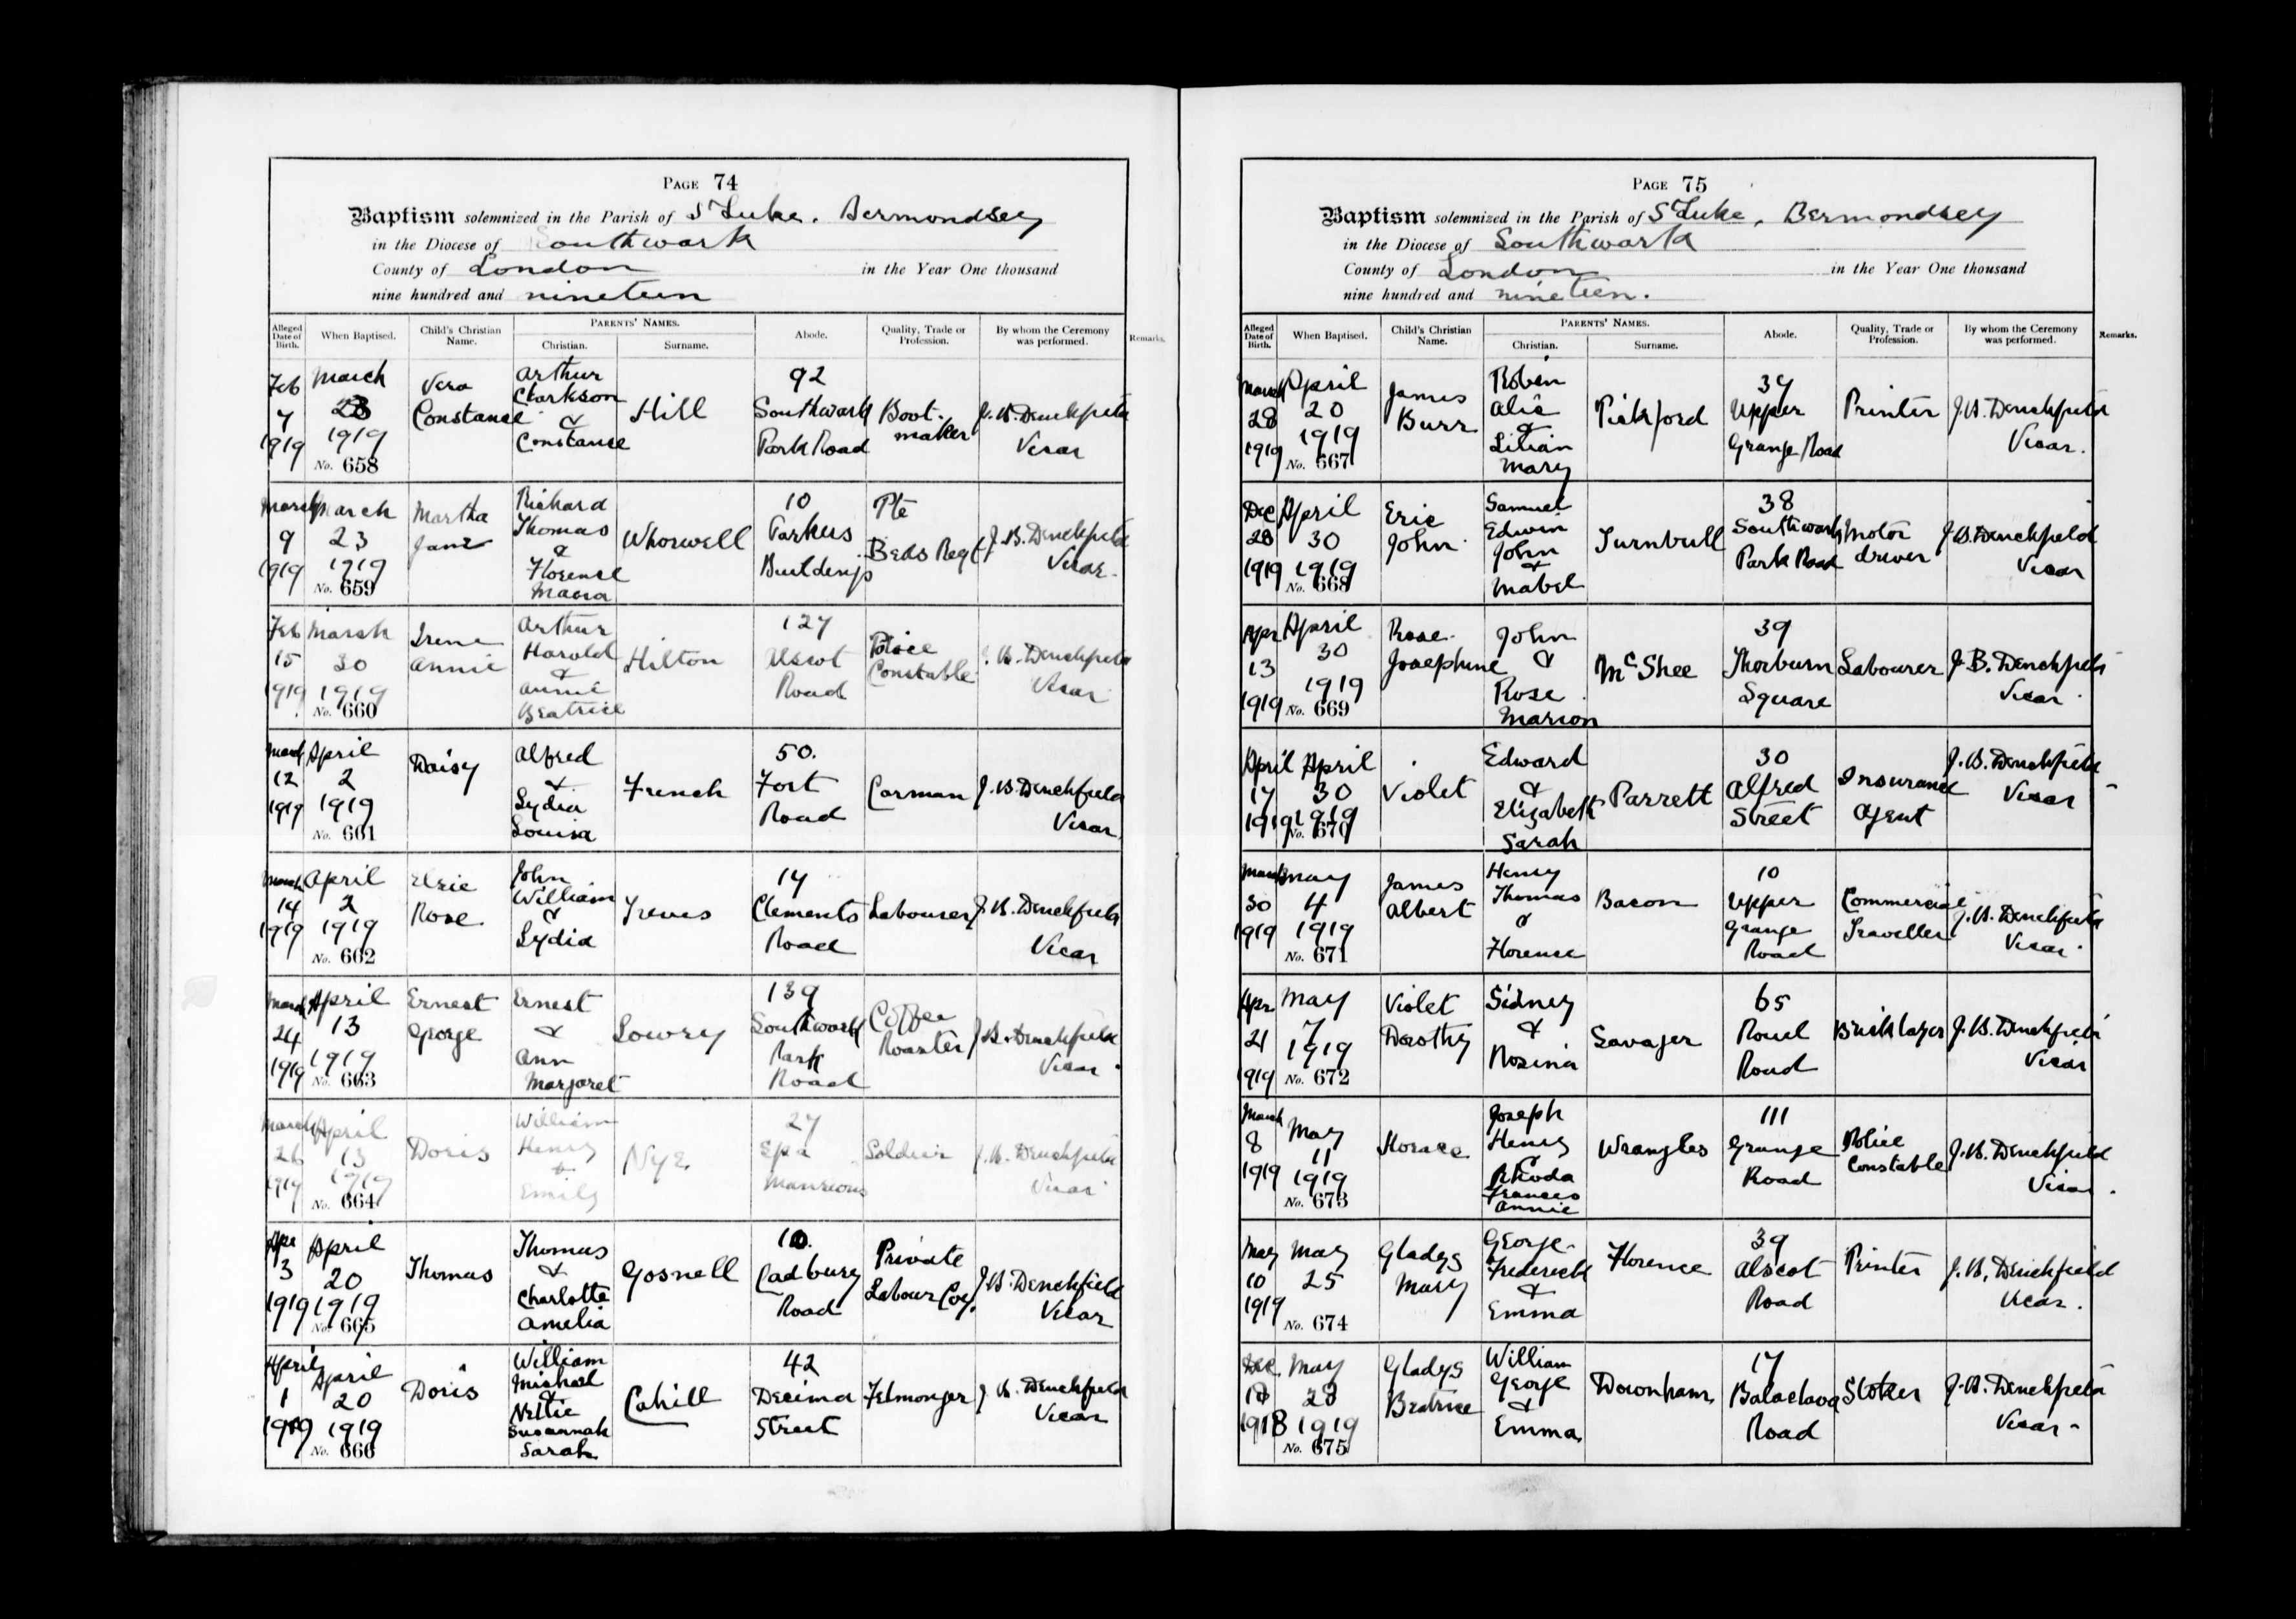 PAGE 74
Baptism solemnized in the Parish of St Luke. Bermondsey
in the Diocese of Southwark
County of London in the Year One thousand
nine hundred and nineteen
Alleged Date of Birth. When Baptised. Child's Christian Name. PARENTS' NAMES. Christian. Surname. Abode. Quality, Trade or Profession. By whom the Ceremony was performed. Remarks.
Feb 7 1919 March 23 1919 No. 658 Vera Constance Arthur Clarkson & Constance Hill 92 Southwark Park Road Bootmaker J. B. Denchfield Vicar
March 9 1919 March 23 1919 No. 659 Martha Jane Richard Thomas & Florence Whorwell 10 Buildings Pte Beds Regt J. B. Denchfield Vicar
Feb 15 1919 March 30 1919 No. 660 Irene Annie Arthur Harold & Annie Beatrice Hilton 127 Alscot Road Police Constable J. B. Denchfield Vicar
March 12 1919 April 2 1919 No. 661 Daisy Alfred & Lydia Louisa French 50. Fort Road Carman J. B. Denchfield Vicar
March 14 1919 April 2 1919 No. 662 Elsie Rose John William & Lydia 17 Clements Road Labourer J. B. Denchfield Vicar
March 24 1919 April 13 1919 No. 663 Ernest George Ernest & Ann Margaret Lowry 139 Southwark Park Road Coffee Roaster J. B. Denchfield Vicar
March 26 1919 April 13 1919 No. 664 Doris William Henry & Emily Nye 27 Spa Mansions Soldier J. B. Denchfield Vicar
Apr 3 1919 April 20 1919 No. 665 Thomas Thomas & Charlotte Amelia Gosnell 10. Cadbury Road Private Labour Coy. J. B. Denchfield Vicar
April 1 1919 April 20 1919 No. 666 Doris William Michael & Nellie Susannah Sarah Cahill 42 Decima Street Felmonger J. B. Denchfield Vicar
PAGE 75
Baptism solemnized in the Parish of St Luke, Bermondsey
in the Diocese of Southwark
County of London in the Year One thousand
nine hundred and nineteen.
Alleged Date of Birth. When Baptised. Child's Christian Name. PARENTS' NAMES. Christian. Surname. Abode. Quality, Trade or Profession. By whom the Ceremony was performed. Remarks.
March 28 1919 April 20 1919 No. 667 James Burr & Lilian Mary Pickford 37 Upper Grange Road Printer J. B. Denchfield Vicar.
Dec 28 1919 April 30 1919 No. 668 Eric John Samuel Edwin John & Mabel Turnbull 38 Southwark Park Road Motor driver J. B. Denchfield Vicar
Apr 13 1919 April 30 1919 No. 669 Rose Josephine John & Rose Marion McShee 39 Thorburn Square Labourer J. B. Denchfield Vicar
April 17 1919 April 30 1919 No. 670 Violet Edward & Elizabeth Sarah Parrett 30 Alfred Street Insurance Agent J. B. Denchfield Vicar
March 30 1919 May 4 1919 No. 671 James Albert Henry Thomas & Florence Bacon 10 Upper Grange Road Commercial Traveller J. B. Denchfield Vicar
Apr. 21 1919 May 7 1919 No. 672 Violet Dorothy Sidney & Rosina Savager 65 Rouel Road Bricklayer J. B. Denchfield Vicar
March 8 1919 May 11 1919 No. 673 Horace Joseph Henry & Rhoda Frances Annie Wrangles 111 Grange Road Police Constable J. B. Denchfield Vicar.
May 10 1919 May 25 No. 674 Gladys Mary George Frederick & Emma Florence 39 Alscot Road Printer J. B. Denchfield Vicar.
Dec. 1918 May 28 1919 No. 675 Gladys Beatrice William George & Emma Downham 17 Balaclava Road Stoker J. B. Denchfield Vicar